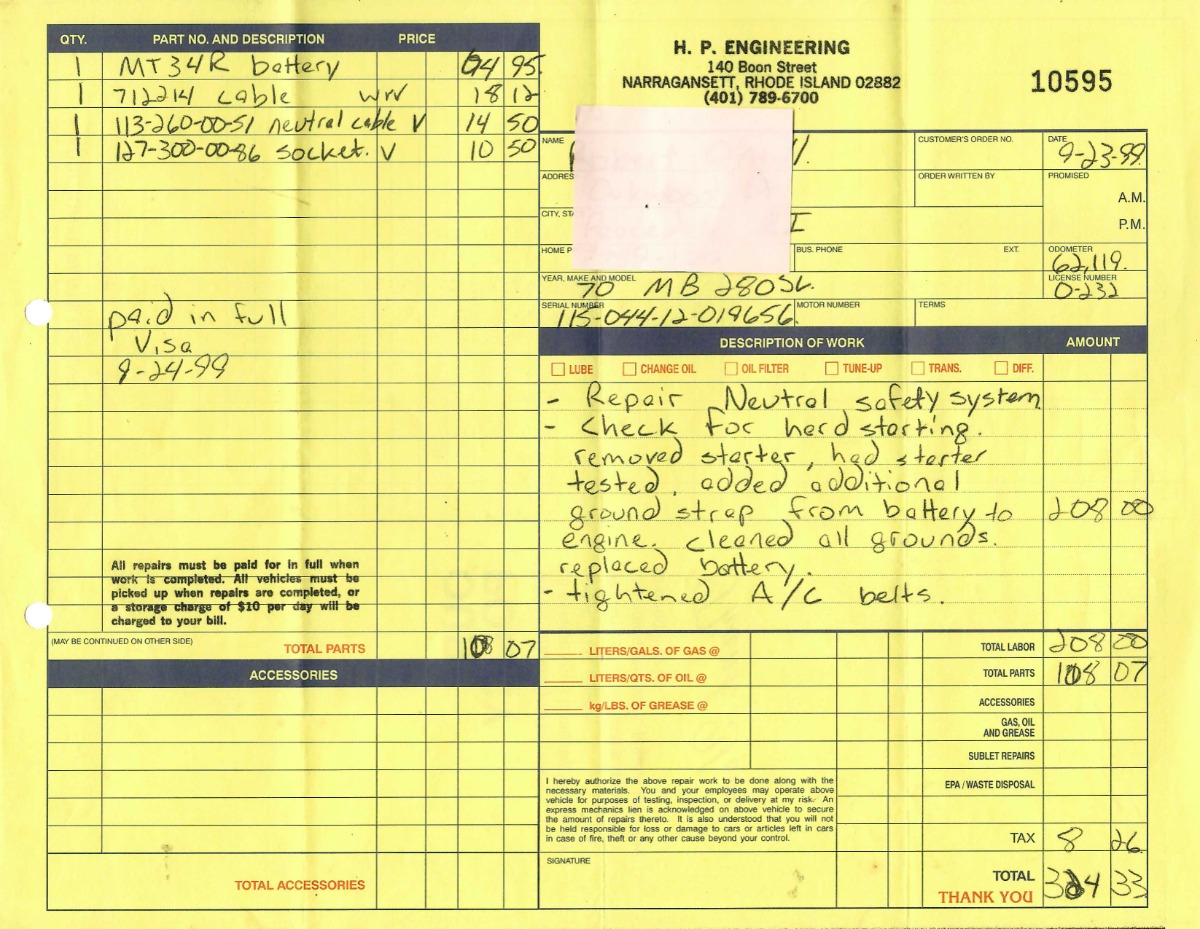 QTY. PART NO. AND DESCRIPTION PRICE
1 MT34R battery 64 95
1 712214 cable 18 12
1 113-260-00-51 neutral cable V 14 50
1 127-300-00-86 socket. V 10 50
paid in full
Visa
9-24-99
All repairs must be paid for in full when
work is completed. All vehicles must be
picked up when repairs are completed, or
a storage charge of $10 per day will be
charged to your bill.
(MAY BE CONTINUED ON OTHER SIDE)
TOTAL PARTS 108 07
ACCESSORIES
TOTAL ACCESSORIES
H. P. ENGINEERING
140 Boon Street
NARRAGANSETT, RHODE ISLAND 02882
(401) 789-6700
10595
NAME CUSTOMER'S ORDER NO. DATE
9-23-99
ADDRES ORDER WRITTEN BY PROMISED
A.M.
CITY, STA P.M.
HOME P BUS. PHONE EXT. ODOMETER
62,119.
YEAR, MAKE AND MODEL LICENSE NUMBER
70 MB 280SL. 0-232
SERIAL NUMBER MOTOR NUMBER TERMS
115-044-12-019656
DESCRIPTION OF WORK AMOUNT
LUBE CHANGE OIL OIL FILTER TUNE-UP TRANS. DIFF.
- Repair Neutral safety system
- Check for hard starting.
removed starter, had starter
tested. added additional
ground strap from battery to 208 00
engine. cleaned all grounds.
replaced battery.
- tightened A/C belts.
LITERS/GALS. OF GAS @ TOTAL LABOR 208 00
LITERS/QTS. OF OIL @ TOTAL PARTS 108 07
kg/LBS. OF GREASE @ ACCESSORIES
GAS, OIL
AND GREASE
SUBLET REPAIRS
EPA / WASTE DISPOSAL
I hereby authorize the above repair work to be done along with the
necessary materials. You and your employees may operate above
vehicle for purposes of testing, inspection, or delivery at my risk. An
express mechanics lien is acknowledged on above vehicle to secure
the amount of repairs thereto. It is also understood that you will not
be held responsible for loss or damage to cars or articles left in cars
in case of fire, theft or any other cause beyond your control.
TAX 8 26
SIGNATURE
TOTAL 324 33
THANK YOU